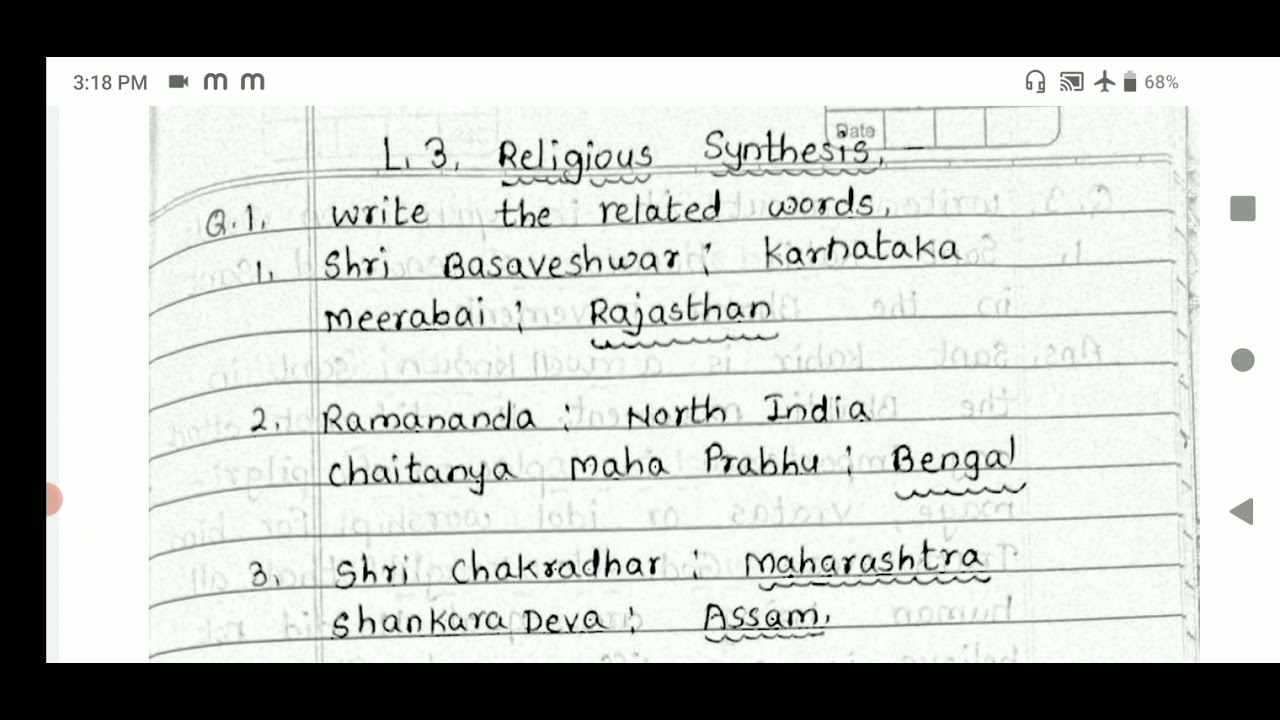 3:18 PM m m 68%
Date
L. 3. Religious Synthesis. -
Q.1. write the related words.
1. Shri Basaveshwar : Karnataka
meerabai : Rajasthan
2. Ramananda : North India
Chaitanya maha Prabhu : Bengal
3. Shri Chakradhar : maharashtra
Shankara Deva : Assam.